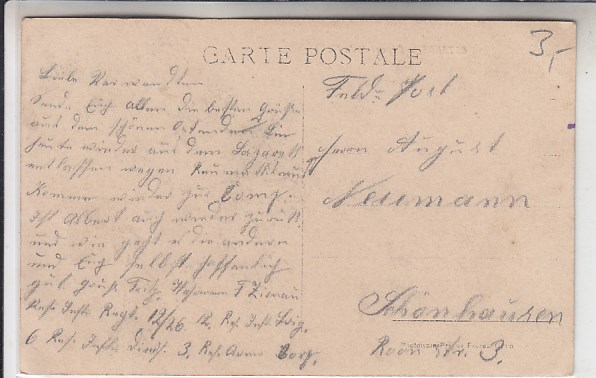 3,-
CARTE POSTALE
Liebe Verwandten
Sende Euch allen die besten Grüße
aus dem schönen Ostende. Bin
heute wieder aus dem Lazarett
entlassen wegen
komme wieder zur Comp.
Ist Albert auch wieder zurück
und wie geht es die andern
und Euch selbst hoffentlich
gut. Gruß Fritz, Wehrmann F.
Res. Inft. Regt. 12/26. 12. Res. Inft. Brig.
6 Res. Inft. Divis. 3. Res. Armee Corp.
Feld-Post
Herrn August
Neumann
Schönhausen
Roon Str. 3.